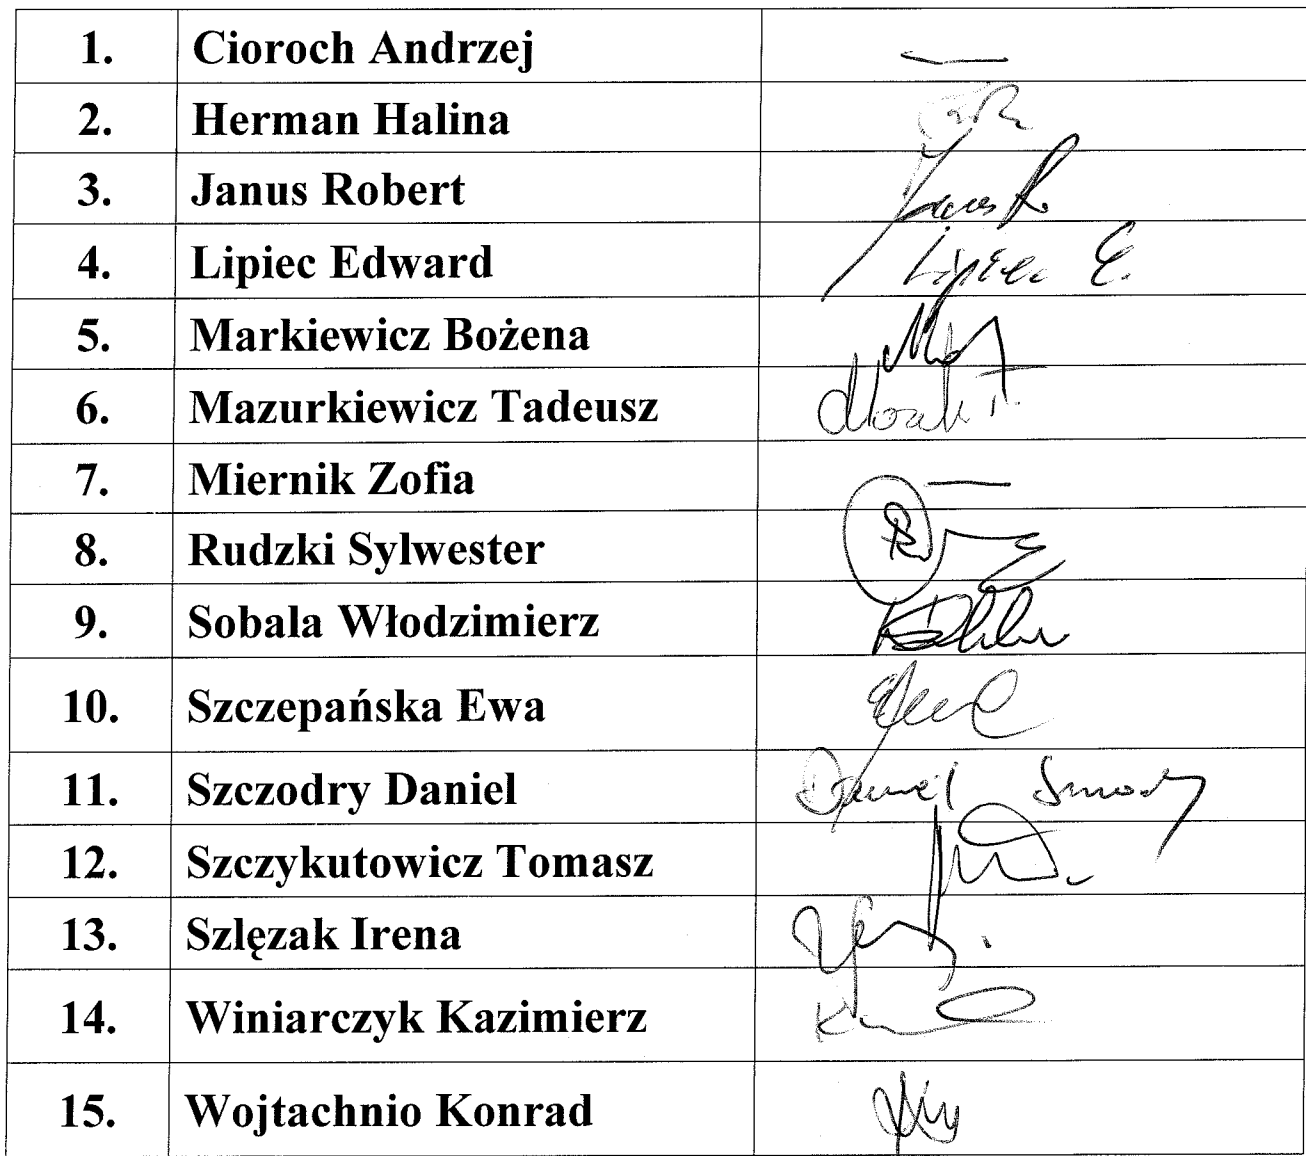 1. Cioroch Andrzej —
2. Herman Halina
3. Janus Robert Janus R.
4. Lipiec Edward Lipiec E.
5. Markiewicz Bożena
6. Mazurkiewicz Tadeusz
7. Miernik Zofia —
8. Rudzki Sylwester
9. Sobala Włodzimierz
10. Szczepańska Ewa
11. Szczodry Daniel Daniel
12. Szczykutowicz Tomasz
13. Szlęzak Irena
14. Winiarczyk Kazimierz
15. Wojtachnio Konrad